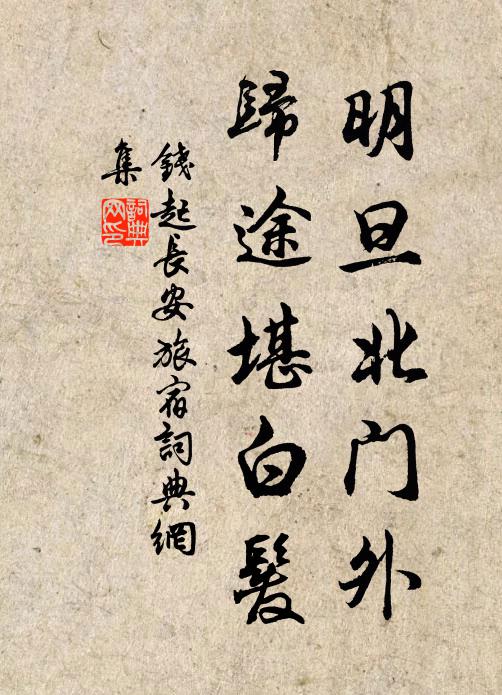 明旦北门外
歸途堪白髮
錢起長安旅宿詞典網
集
詞典网印